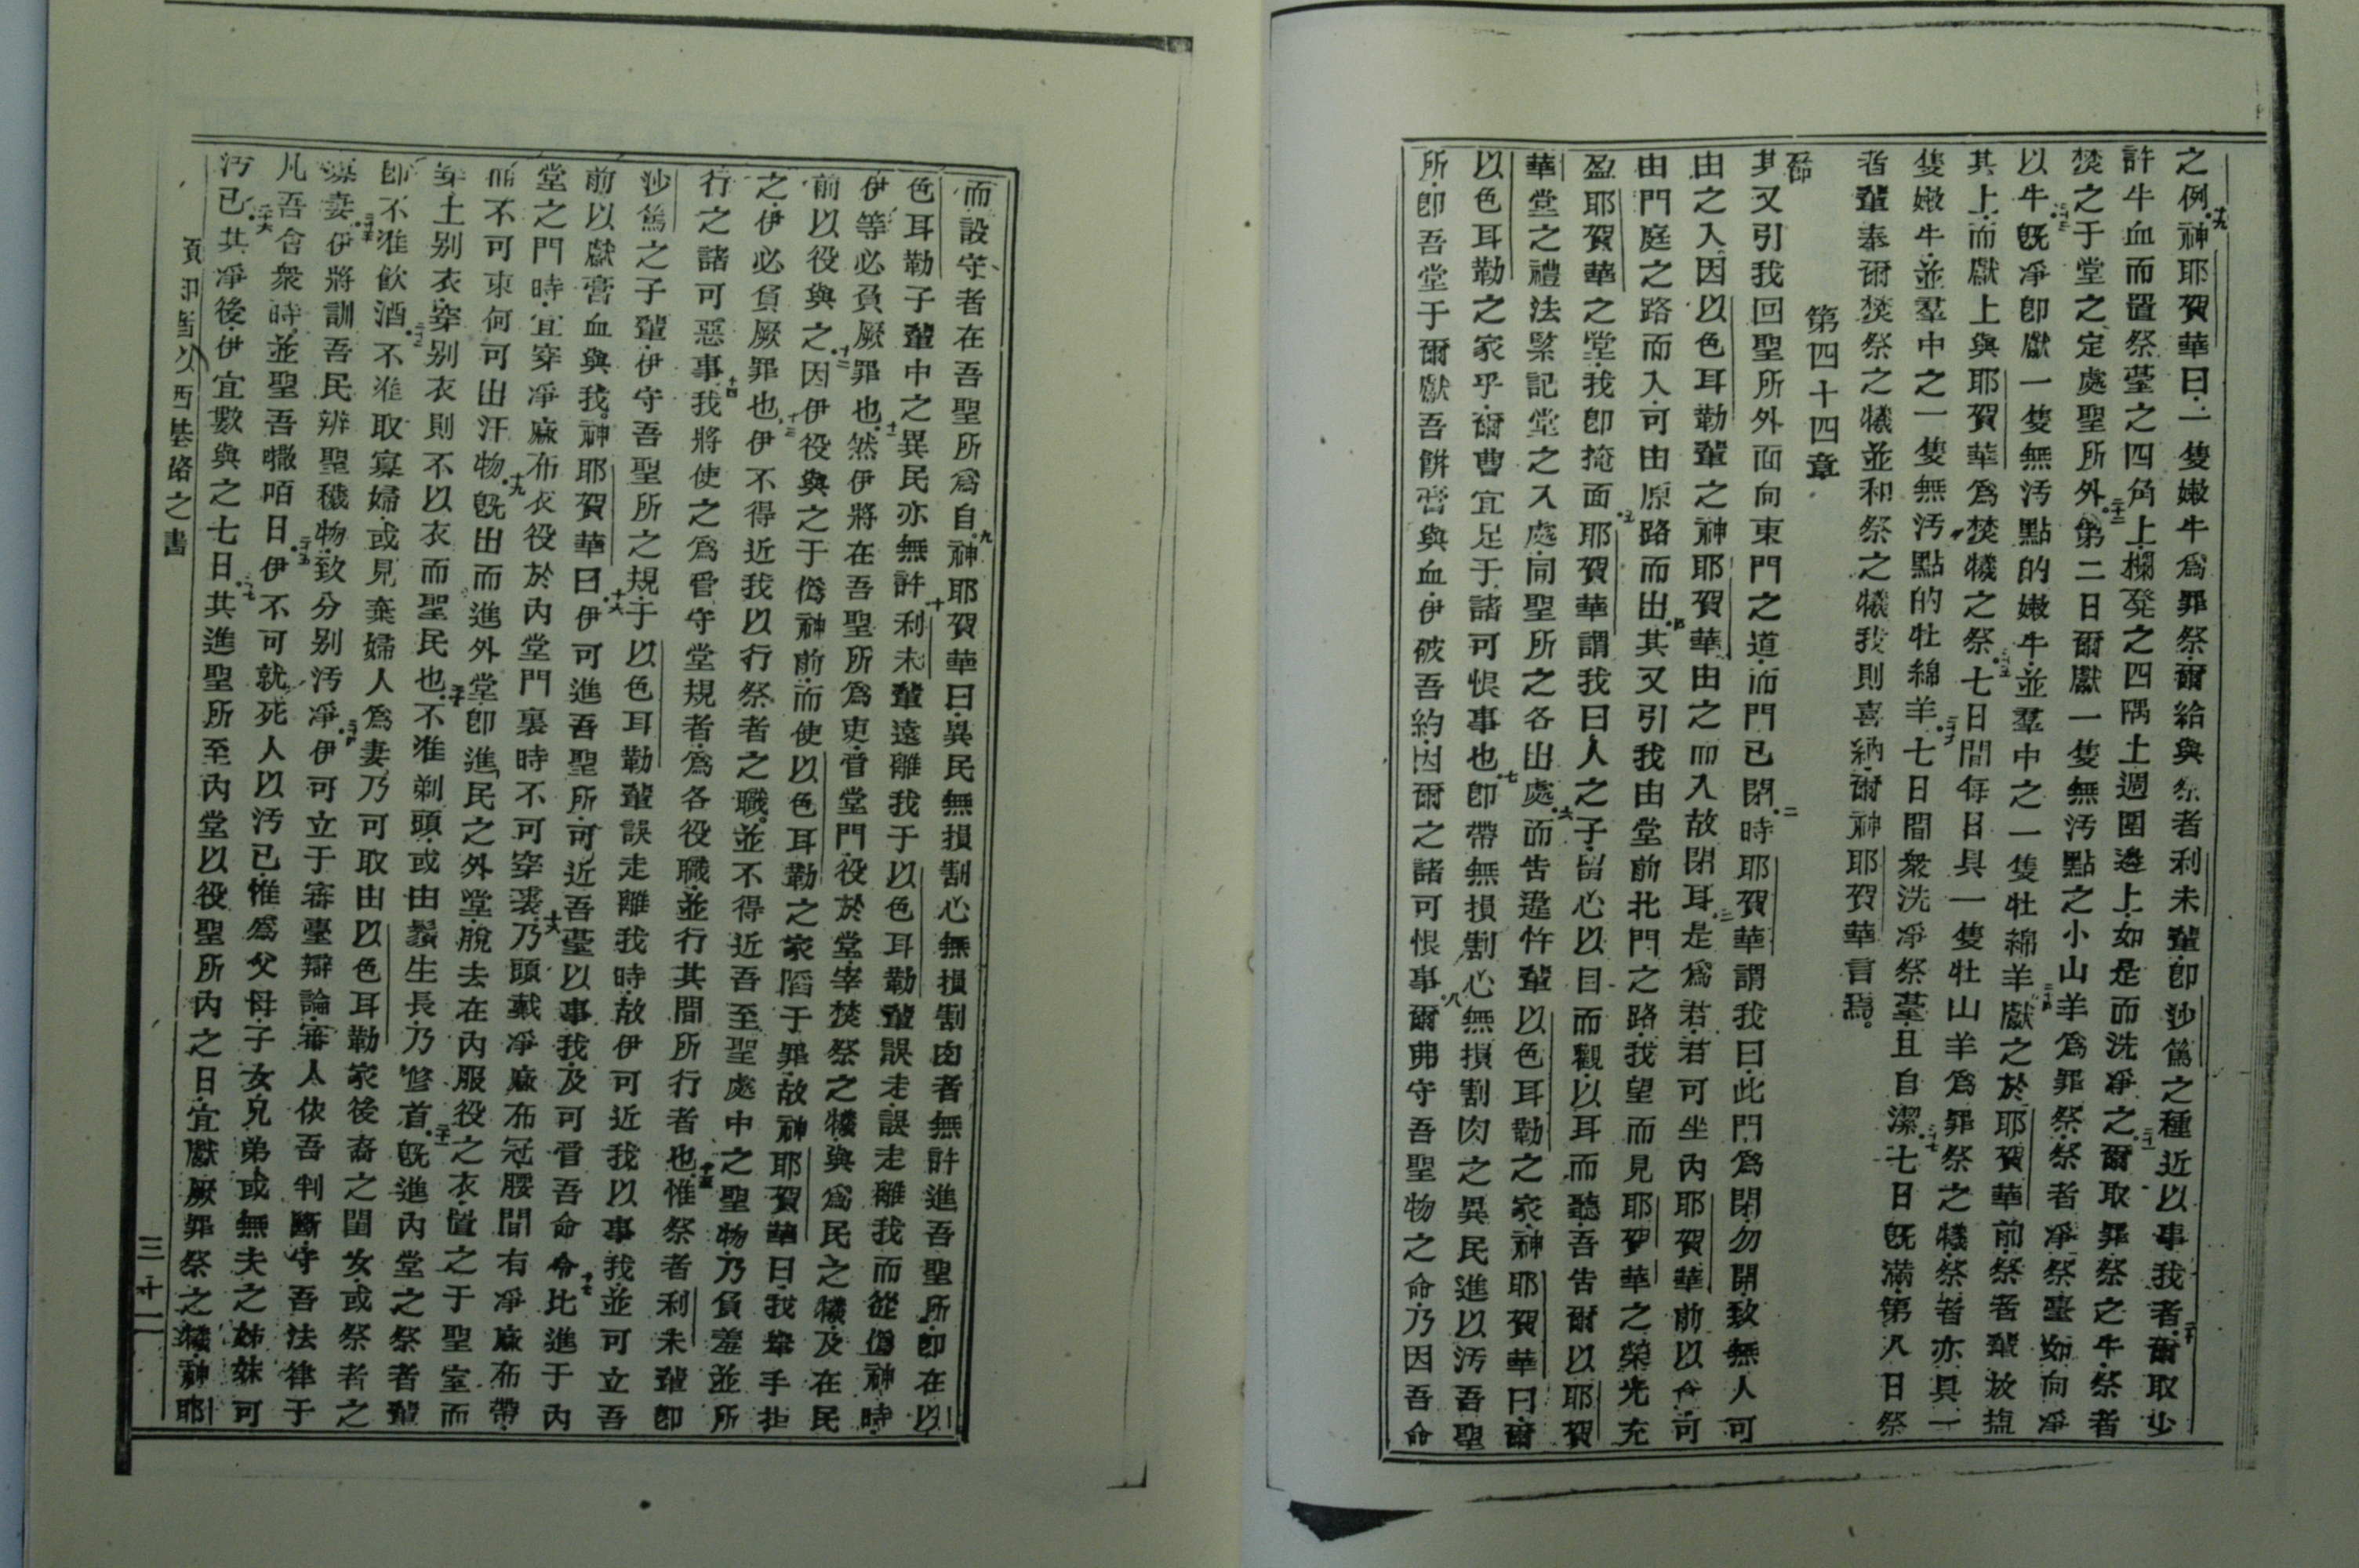 之例十九神耶賀華曰一隻嫩牛爲罪祭爾給與祭者利未輩卽沙篤之種近以事我者二十爾取少
許牛血而置祭㙜之四角上欄凳之四隅土週圍邊上如是而洗凈之二十一爾取罪祭之牛祭者
焚之于堂之定處聖所外二十二第二日爾獻一隻無汚點之小山羊爲罪祭祭者凈祭臺如向凈
以牛二十三旣凈卽獻一隻無汚點的嫩牛並羣中之一隻牡綿羊二十四獻之於耶賀華前祭者輩放塩
其上而獻上與耶賀華爲焚犧之祭二十五七日間每日具一隻牡山羊爲罪祭之犧祭者亦具一
隻嫩牛並羣中之一隻無汚點的牡綿羊二十六七日間衆洗凈祭㙜且自潔二十七七日旣滿第八日祭
者輩奉爾焚祭之犧並和祭之犧我則喜納爾神耶賀華言焉
第四十四章
其又引我回聖所外面向東門之道而門已閉二時耶賀華謂我曰此門爲閉勿開致無人可
由之入因以色耳勒輩之神耶賀華由之而入故閉耳三是爲君君可坐內耶賀華前以食可
由門庭之路而入可由原路而出四其又引我由堂前北門之路我望而見耶賀華之榮光充
盈耶賀華之堂我卽掩面五耶賀華謂我曰人之子留心以目而觀以耳而聽吾告爾以耶賀
華堂之禮法緊記堂之入處同聖所之各出處六而告違忤輩以色耳勒之家神耶賀華曰爾
以色耳勒之家乎爾曹宜足于諸可恨事也七卽帶無損割心無損割肉之異民進以汚吾聖
所卽吾堂于爾獻吾餅膏與血伊破吾約因爾之諸可恨事八爾弗守吾聖物之命乃因吾命
而設守者在吾聖所爲自九神耶賀華曰異民無損割心無損割肉者無許進吾聖所卽在以
色耳勒子輩中之異民亦無許十利未輩遠離我于以色耳勒輩誤走誤走離我而從僞神時
伊等必負厥罪也十一然伊將在吾聖所爲吏管堂門役於堂宰焚祭之犧與爲民之犧及在民
前以役與之十二因伊役與之于僞神前而使以色耳勒之家陷于罪故神耶賀華曰我舉手拒
之伊必負厥罪也十三伊不得近我以行祭者之職並不得近吾至聖處中之聖物乃負羞並所
行之諸可惡事十四我將使之爲管守堂規者爲各役職並行其間所行者也十五惟祭者利未輩卽
沙篤之子輩伊守吾聖所之規于以色耳勒輩誤走離我時故伊可近我以事我並可立吾
前以獻膏血與我神耶賀華曰十六伊可進吾聖所可近吾㙜以事我及可管吾命令十七比進于內
堂之門時宜穿凈蔴布衣役於內堂門裏時不可穿裘十八乃頭戴凈蔴布冠腰間有凈蔴布帶
而不可束何可出汗物十九旣出而進外堂卽進民之外堂脫去在內服役之衣置之于聖室而
穿上别衣穿别衣則不以衣而聖民也二十不准剃頭或由鬚生長乃修首二十一旣進內堂之祭者輩
卽不准飮酒二十二不准取寡婦或見棄婦人爲妻乃可取由以色耳勒家後裔之閨女或祭者之
寡妻二十三伊將訓吾民辨聖穢物致分别汚凈二十四伊可立于審臺辯論審人依吾判斷守吾法律于
凡吾會衆時並聖吾㘔咟日二十五伊不可就死人以汚已惟爲父母子女兄弟或無夫之姊妹可
汚已二十六其凈後伊宜數與之七日二十七其進聖所至內堂以役聖所內之日宜獻厥罪祭之犧神耶
之書
三十一